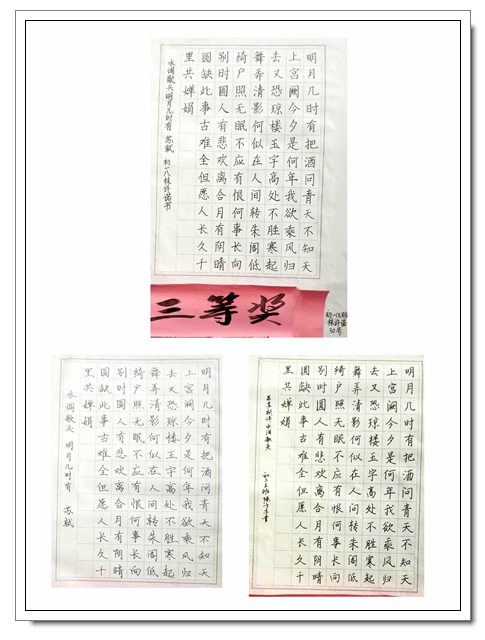 明月几时有把酒问青天不知天
上宫阙今夕是何年我欲乘风归
去又恐琼楼玉宇高处不胜寒起
舞弄清影何似在人间转朱阁低
绮户照无眠不应有恨何事长向
别时圆人有悲欢离合月有阴晴
圆缺此事古难全但愿人长久千
里共婵娟
水调歌头明月几时有 苏轼 初一八林许诺书
三等奖
林许诺
30号
明月几时有把酒问青天不知天
上宫阙今夕是何年我欲乘风归
去又恐琼楼玉宇高处不胜寒起
舞弄清影何似在人间转朱阁低
绮户照无眠不应有恨何事长向
别时圆人有悲欢离合月有阴晴
圆缺此事古难全但愿人长久千
里共婵娟
水调歌头 明月几时有 苏轼
明月几时有把酒问青天不知天
上宫阙今夕是何年我欲乘风归
去又恐琼楼玉宇高处不胜寒起
舞弄清影何似在人间转朱阁低
绮户照无眠不应有恨何事长向
别时圆人有悲欢离合月有阴晴
圆缺此事古难全但愿人长久千
里共婵娟